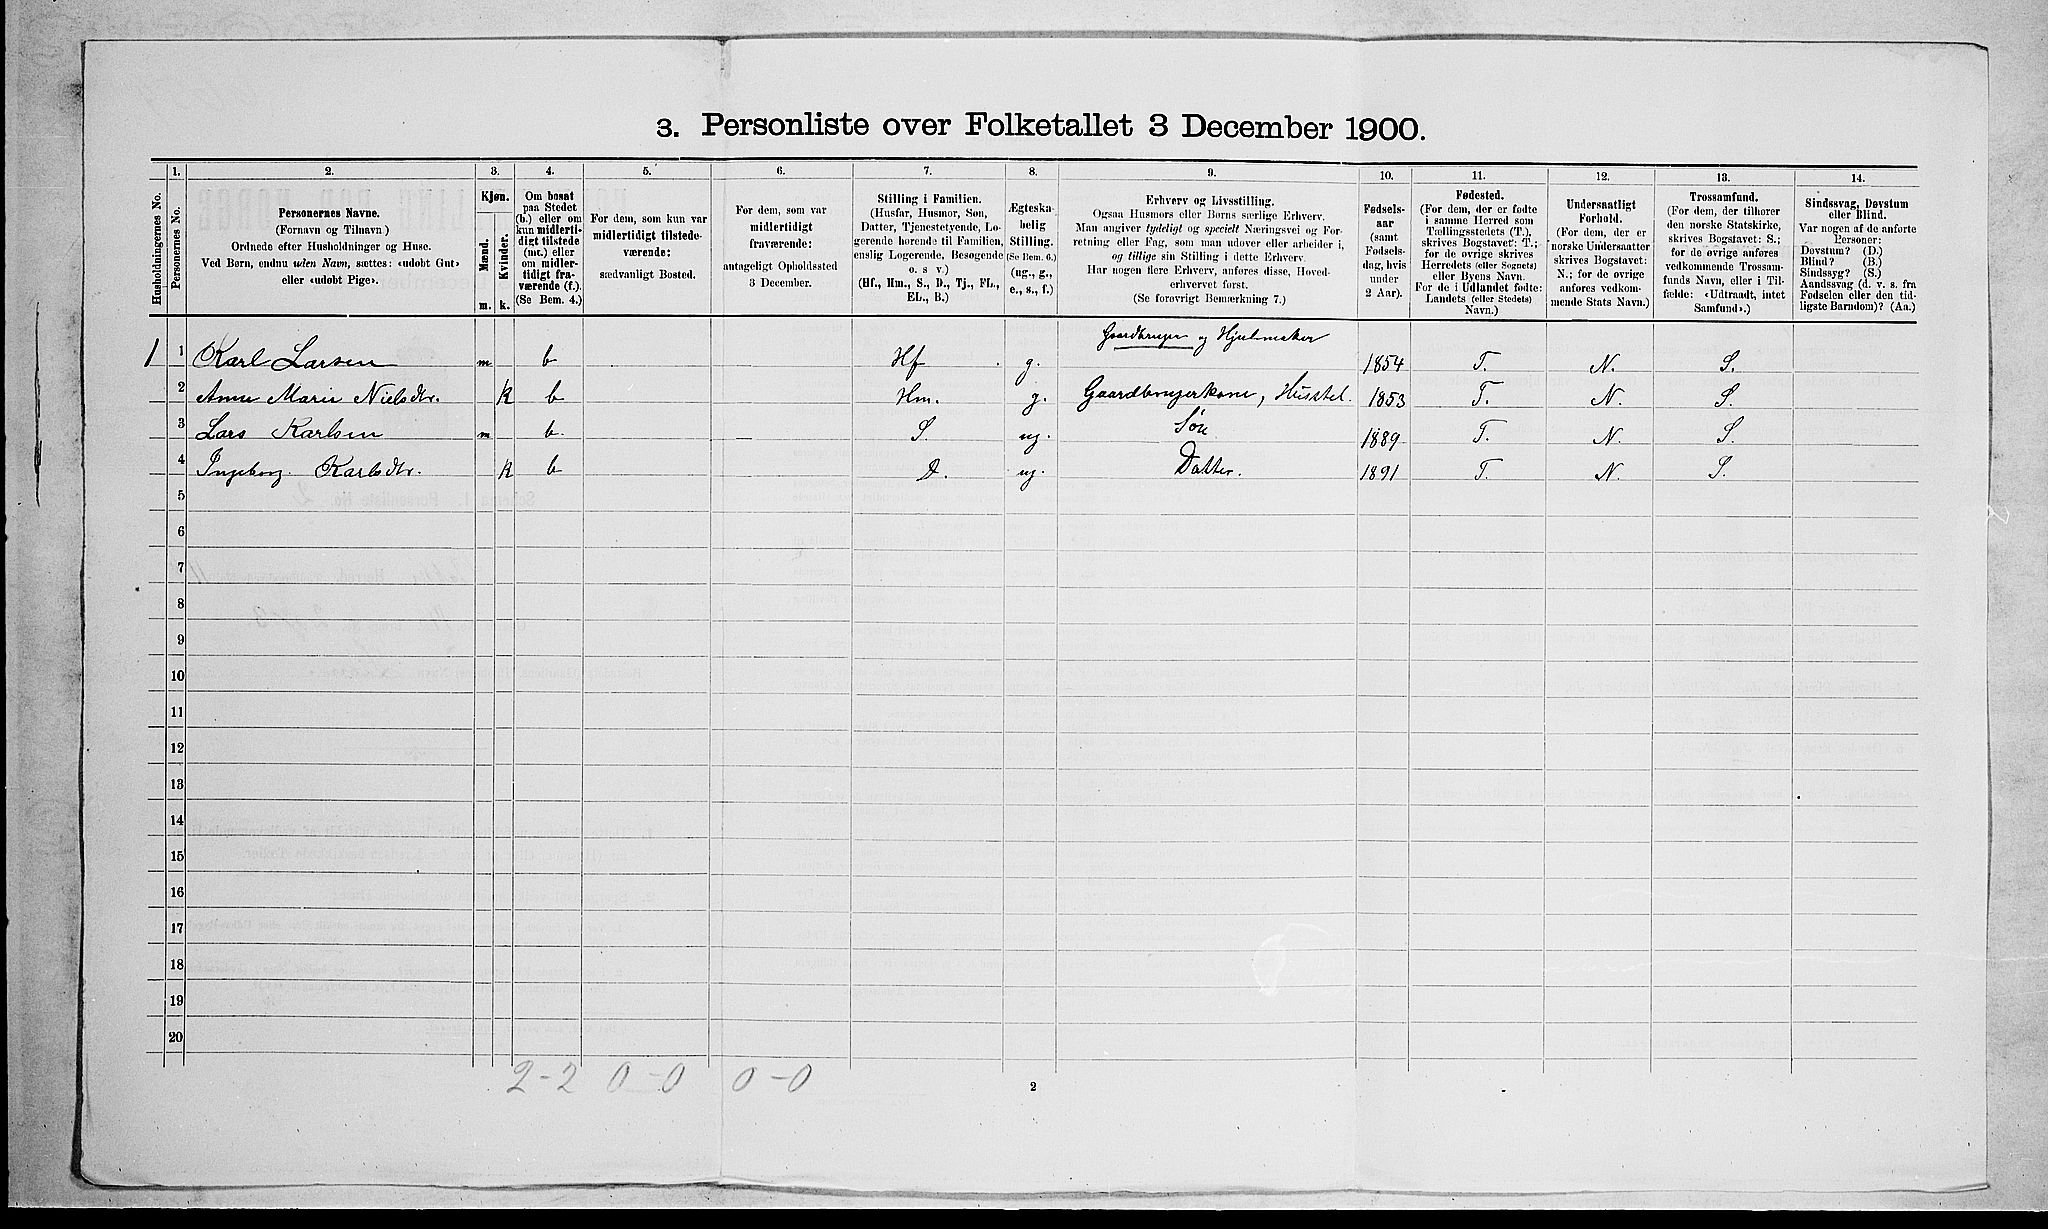 3. Personliste over Folketallet 3 December 1900.
Husholdningernes No.
1.
Personernes No.
2.
Personernes Navne.
(Fornavn og Tilnavn)
Ordnede efter Husholdninger og Huse.
Ved Børn, endnu uden Navn, sættes: «udøbt Gut»
eller «udøbt Pige».
3.
Kjøn.
Mænd.
Kvinder.
m. k.
4.
Om bosat
paa Stedet
(b.) eller om
kun midlerti-
digt tilstede
(mt.) eller
om midler-
tidigt fra-
værende (f.).
(Se Bem. 4.)
5.
For dem, som kun var
midlertidigt tilstede-
værende:
sædvanligt Bosted.
6.
For dem, som var
midlertidigt
fraværende:
antageligt Opholdssted
3 December.
7.
Stilling i Familien.
(Husfar, Husmor, Søn,
Datter, Tjenestetyende, Lo-
gerende hørende til Familien,
enslig Logerende, Besøgende
o. s v.)
(Hf., Hm., S., D., Tj., FL.,
EL., B.)
8.
Ægteska-
belig
Stilling.
(Se Bem. 6.)
(ug., g.,
e., s., f.)
9.
Erhverv og Livsstilling.
Ogsaa Husmors eller Børns særlige Erhverv.
Man angiver tydeligt og specielt Næringsvei og For-
retning eller Fag, som man udøver eller arbeider i,
og tillige sin Stilling i dette Erhverv.
Har nogen flere Erhverv, anføres disse, Hoved-
erhvervet først.
(Se forøvrigt Bemerkning 7.)
10.
Fødsels-
aar
(samt
Fødsels-
dag, hvis
under
2 Aar).
11.
Fødested.
(For dem, der er fødte
i samme Herred som
Tællingsstedets (T.),
skrives Bogstavet: T.;
for de øvrige skrives
Herredets (eller Sognets)
eller Byens Navn.
For de i Udlandet fødte:
Landets (eller Stedets)
Navn.)
12.
Undersaatligt
Forhold.
(For dem, der er
norske Undersaatter
skrives Bogstavet:
N.; for de øvrige
anføres vedkom-
mende Stats Navn.)
13.
Trossamfund.
(For dem, der tilhører
den norske Statskirke,
skrives Bogstavet: S.;
for de øvrige anføres
vedkommende Trossam-
funds Navn, eller i Til-
fælde: «Udtraadt, intet
Samfund».)
14.
Sindssvag, Døvstum
eller Blind.
Var nogen af de anførte
Personer:
Døvstum? (D.)
Blind? (B.)
Sindssyg? (S.)
Aandssvag (d. v. s. fra
Fødselen eller den tid-
ligste Barndom)? (Aa.)
1 1 Karl Larsen m b Hf g. Gaardbruger og Hjulmaker 1854 T. N. S.
2 Anne Marie Nielsdtr. K b Hm. g. Gaardbrugerkone, Husstel. 1853 T. N. S.
3 Lars Karlsen m b. S. ug. Søn 1889 T. N. S.
4 Ingeborg Karlsdtr. K b D. ug. Datter. 1891 T. N. S.
5
6
7
8
9
10
11
12
13
14
15
16
17
18
19
20
2-2 0-0 0-0
2